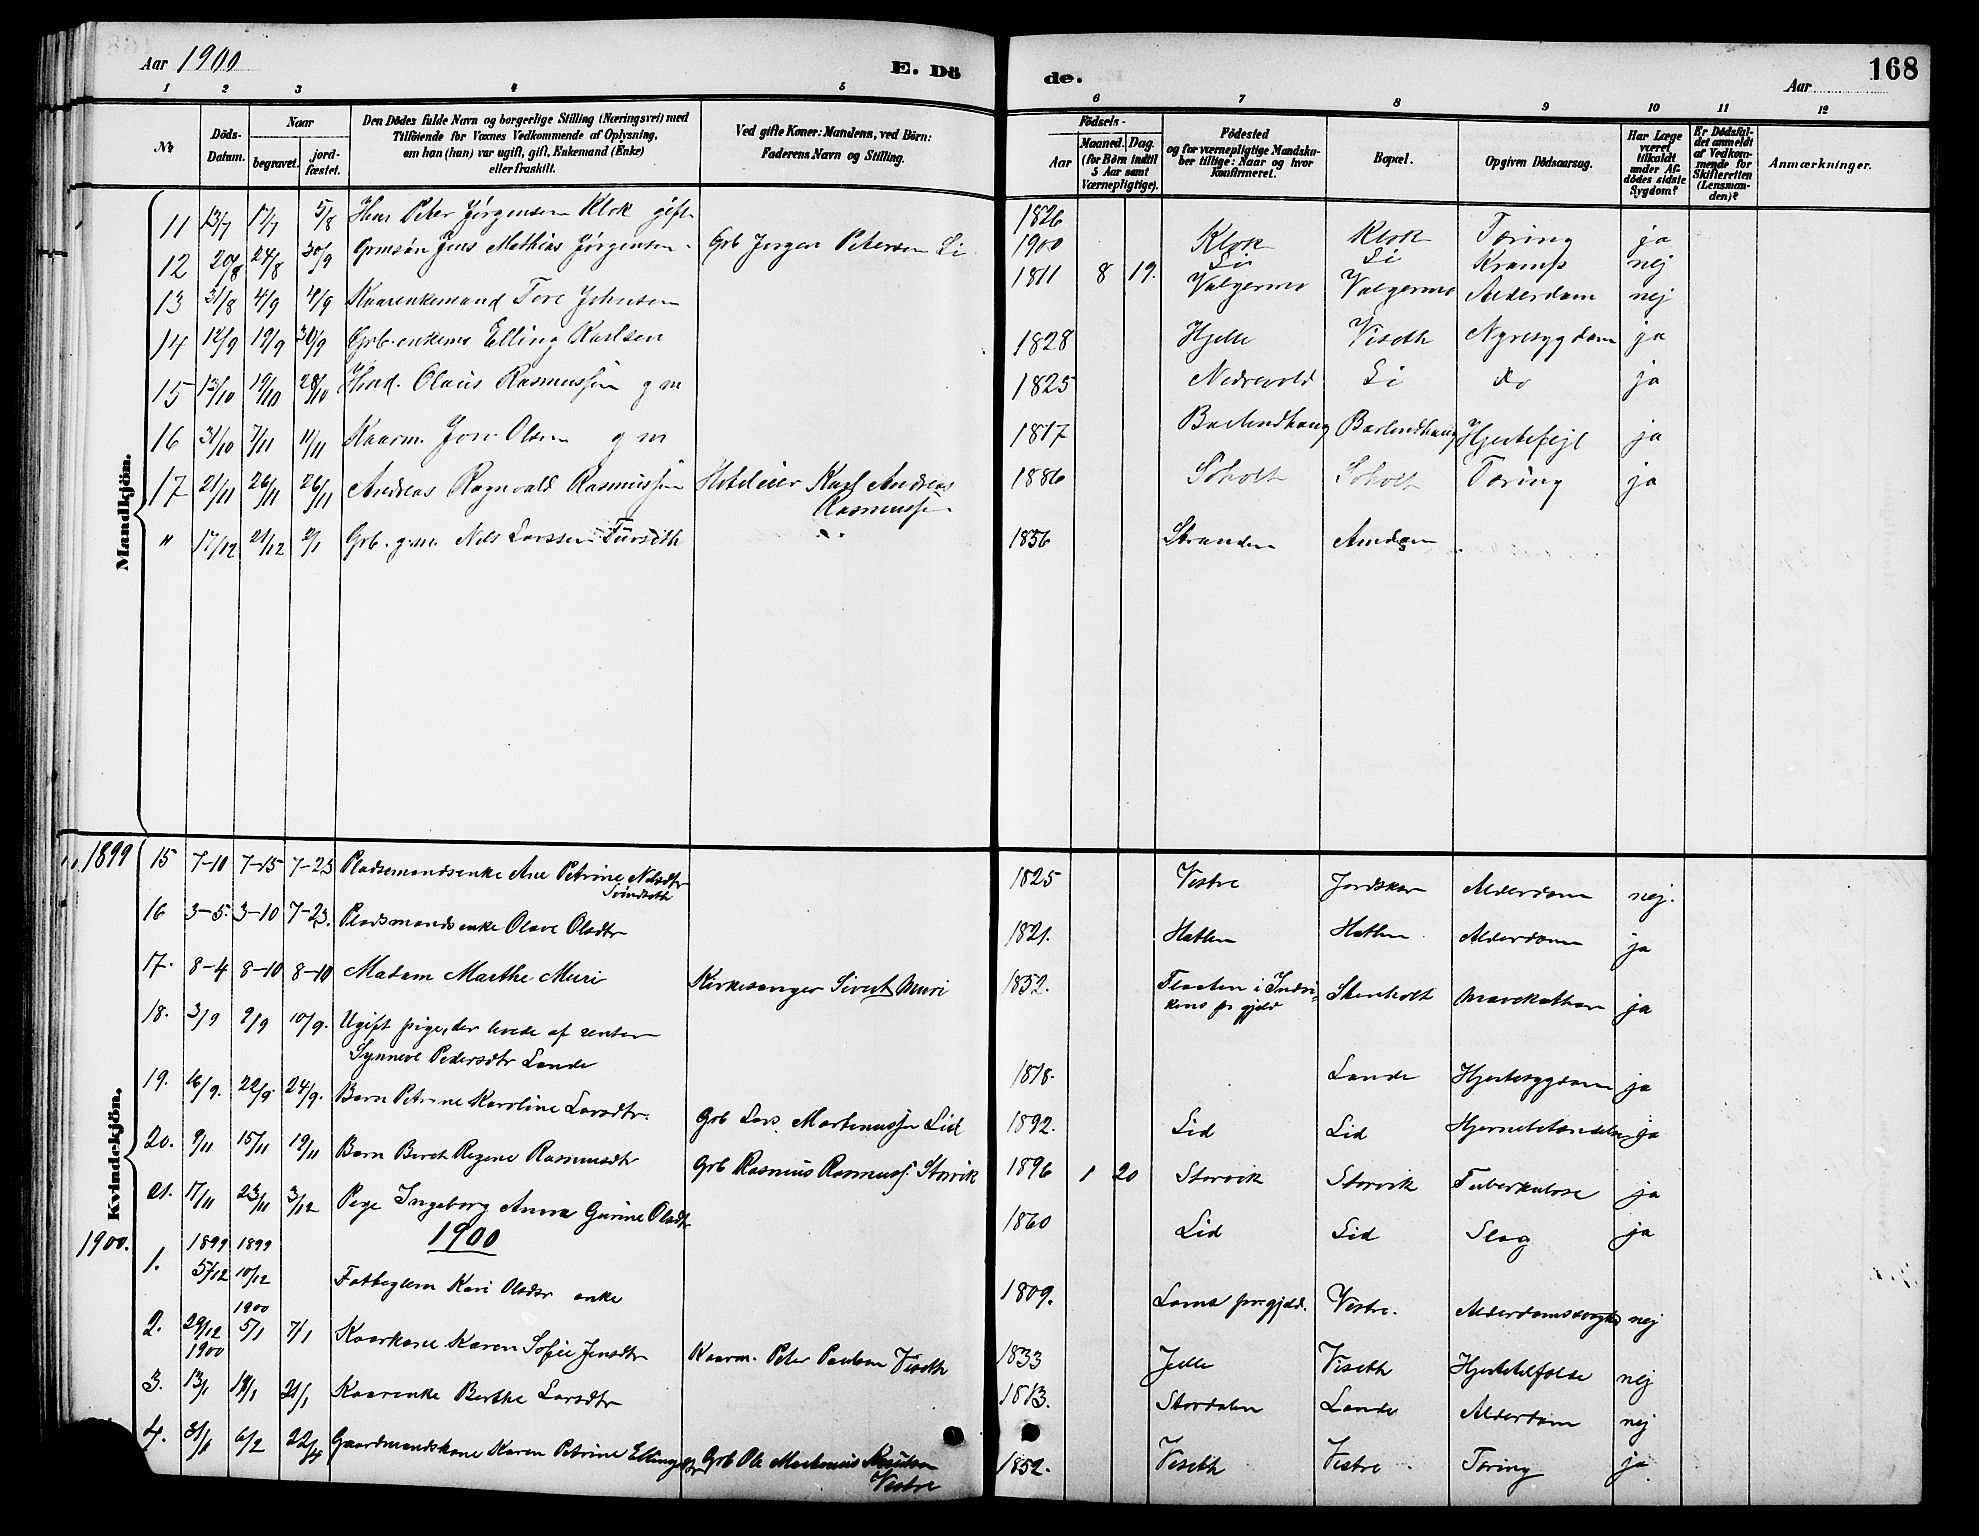 Aar 1900 E. Dö de. Aar 168
1 2 3 4 5 6 7 8 9 10 11 12
No
Döds-Datum.
Naar
begravet.
jord-fæstet.
Den Dödes fulde Navn og borgerlige Stilling (Næringsvei) med
Tilföiende for Voxnes Vedkommende af Oplysning,
om han (hun) var ugift, gift, Enkemand (Enke)
eller fraskilt.
Ved gifte Koner: Mandens, ved Börn:
Faderens Navn og Stilling.
Födsels-
Aar
Maaned. Dag.
(for Börn indtil
5 Aar samt
Værnepligtige).
Födested
og for værnepligtige Mandska-
ber tillige: Naar og hvor
konfirmeret.
Bopæl.
Opgiven Dödsaarsag.
Har Læge
været
tilkaldt
under Af-
dödes sidste
Sygdom?
Er Dödsfal-
det anmeldt
af Vedkom-
mende for
Skifteretten
(Lensman-
den)?
Anmærkninger.
Mandkjön.
11 13/7 17/7 5/8 Peter Jörgensen Klok gift 1826 Klok Klok Tæring ja
12 20/8 24/8 30/9 Grmsön Jens Mathias Jörgensen Grb Jörgen Petersen Li 1900 8 19. Li Li Krampe nej
13 31/8 4/9 4/9 Kaarenkemand Tore Johnsen 1811 Valgermo Valgermo Alderdom nej
14 12/9 19/9 30/9 Grb. enkem Elling Karlsen 1828 Hjelle Viseth Nyresygdom ja
15 13/10 19/10 28/10 Olaus Rasmussen g m 1825 Nedrevold Li do ja
16 31/10 7/11 11/11 Kaarm. Jon Olsen g m 1817 Barlindhaug Barlindhaug Hjertefejl ja
17 21/11 26/11 26/11 Andreas Ragnvald Rasmussen Hoteleier Karl Andreas 1886 Soholt Soholt Tæring ja
Rasmussen
" 17/12 21/12 2/1 Grb. g.m. Nils Larssen 1856 Stranden Amdam
Kvindekjön.
1899 15 7-10 7-15 7-23 Pladsemandsenke Ane Petrine Nilsdtr 1825 Vestre Jordskar Alderdom nej.
16 3-5. 3-10 7-23. Pladsmandsenke Olave Olsdtr 1821. Hatlen Hatlen Alderdom ja
17. 8-4 8-10 8-10 Madam Marthe Muri Kirkesanger Sivert Muri 1852. Flaaten i Indvi- Stenholt Mavekathar ja
kens pr gjeld
18. 3/9 9/9 10/9. Ugift pige, der levede af renter
Synneve Pedersdtr Lande 1818. Lande Hjertesygdom ja
19. 16/9. 22/9. 24/9. Barn Petrine Karoline Larsdtr. Grb Lars Martinussen Lid 1892. Lid Lid ja
20. 9/11 15/11 19/11 Barn Beret Regine Rasmusdtr Grb Rasmus Rasmuss. Storvik 1896 1 20 Storvik Storvik Tuberkulose ja
21. 17/11 23/11 3/12 Pige Ingeborg Anna Gurine Olsdtr 1860 Lid Lid Slag ja
1900. 1900
1. 1899 1899
5/12 10/12 Fattiglem Kari Olsdtr enke 1809. Loms prgjeld. Vestre. nej
2. 29/12 1900
1900 5/1 7/1 Kaarkone Karen Sofie Jensdtr Kaarm. Peter Paulsen Viseth 1833 Jelle Viseth Hjertetilfælde nej
3. 13/1 19/1 21/1 Kaarenke Berthe Larsdtr 1813. Stordalen Lande Alderdom nej
4. 31/1 6/2 22/4 Gaardmandskone Karen Petrine Ellingsdtr Grb Ole Martinius Knutsen 1852. Viseth Vestre Tæring ja
Vestre